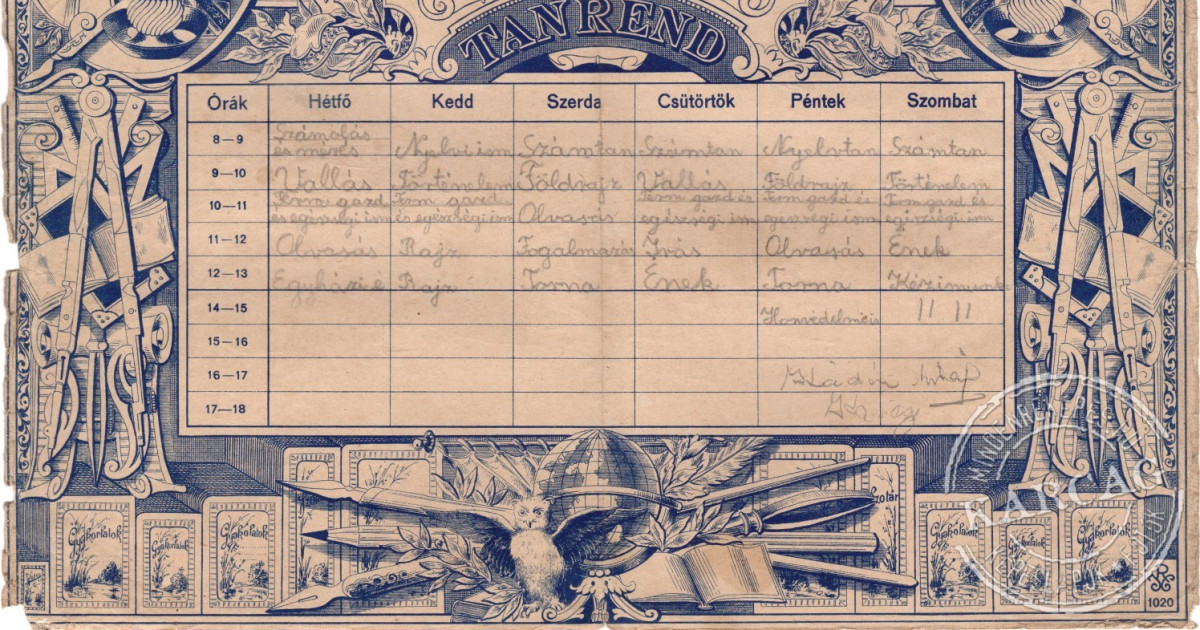 TANREND
Órák Hétfő Kedd Szerda Csütörtök Péntek Szombat
8—9 Számolás és mérés Nyelvi ism Számtan Számtan Nyelvtan Számtan
9—10 Vallás Történelem Földrajz Vallás Földrajz Történelem
10—11 Term gazd és egészségi ism Term gazd és egészségi ism Olvasás Term gazd és egészségi ism Term gazd és egészségi ism Term gazd és egészségi ism
11—12 Olvasás Rajz Fogalmazás Írás Olvasás Ének
12—13 Egyházi é Rajz Torna Ének Torna Kézimunka
14—15 Honvédelmeis 11 11
15—16
16—17
17—18
Gyakorlatok Gyakorlatok Gyakorlatok Gyakorlatok Gyakorlatok Gyakorlatok
KARCAG
1020